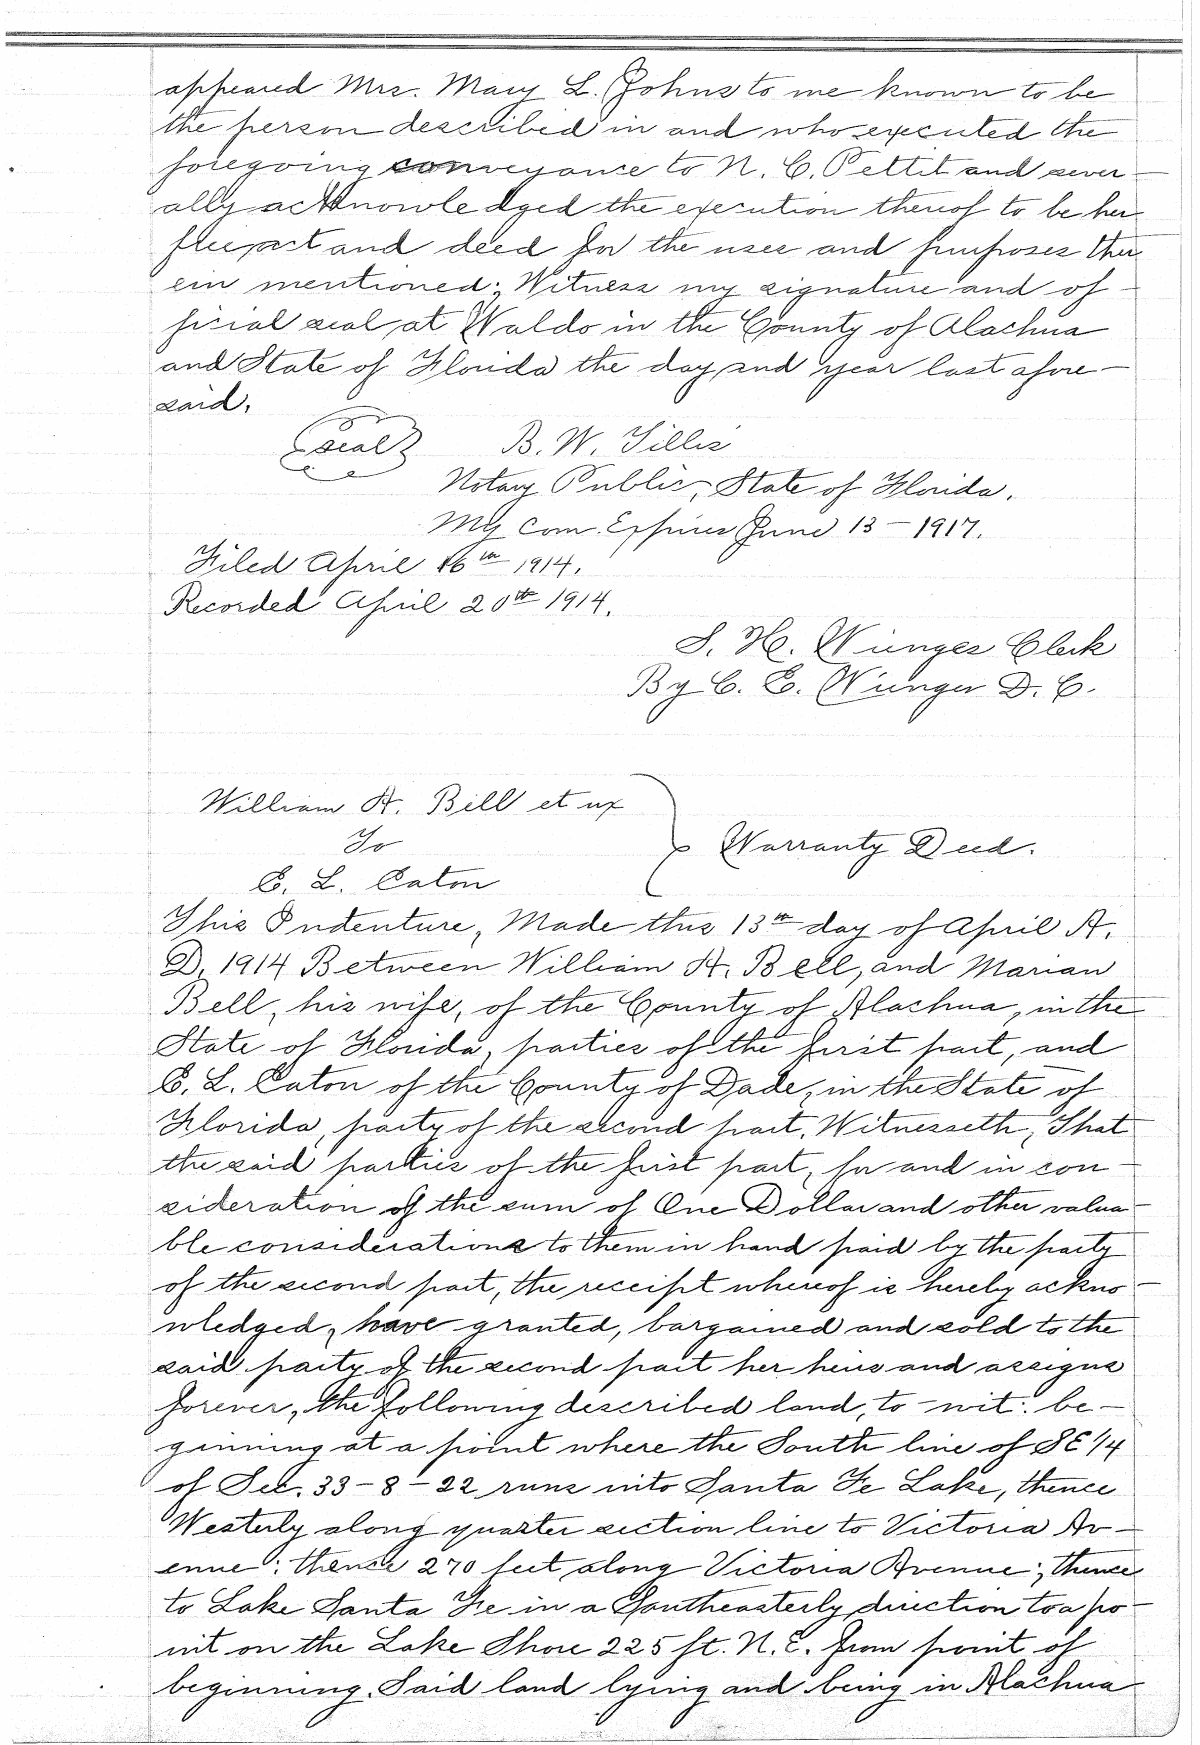 appeared Mrs. Mary L. Johns to me known to be
the person described in and who executed the
foregoing conveyance to N. C. Pettit and sever-
ally acknowledged the execution thereof to be her
free act and deed for the uses and purposes ther
ein mentioned; Witness my signature and of-
ficial seal at Waldo in the County of Alachua
and State of Florida the day and year last afore-
said.
Seal B. W. Tillis
Notary Public, State of Florida.
My Com. Expires June 13-1917.
Filed April 16th 1914.
Recorded April 20th 1914.
S. H. Wienges Clerk
By C. E. Wienges D. C.
William H. Bell et ux
To
Warranty Deed.
E. L. Eaton
This Indenture, Made this 13th day of April A.
D. 1914 Between William H. Bell, and Marian
Bell, his wife, of the County of Alachua, in the
State of Florida, parties of the first part, and
E. L. Eaton of the County of Dade, in the State of
Florida, party of the second part, Witnesseth, That
the said parties of the first part, for and in con-
sideration of the sum of One Dollar and other valua-
ble considerations to them in hand paid by the party
of the second part, the receipt whereof is hereby ackno-
wledged, have granted, bargained and sold to the
said party of the second part her heirs and assigns
forever, the following described land, to-wit: be-
ginning at a point where the South line of SE 1/4
of Sec. 33-8-22 runs into Santa Fe Lake, thence
Westerly along quarter section line to Victoria Av-
enue; thence 270 feet along Victoria Avenue; thence
to Lake Santa Fe in a Southeasterly direction to a po-
int on the Lake Shore 225 ft. N.E. from point of
beginning. Said land lying and being in Alachua